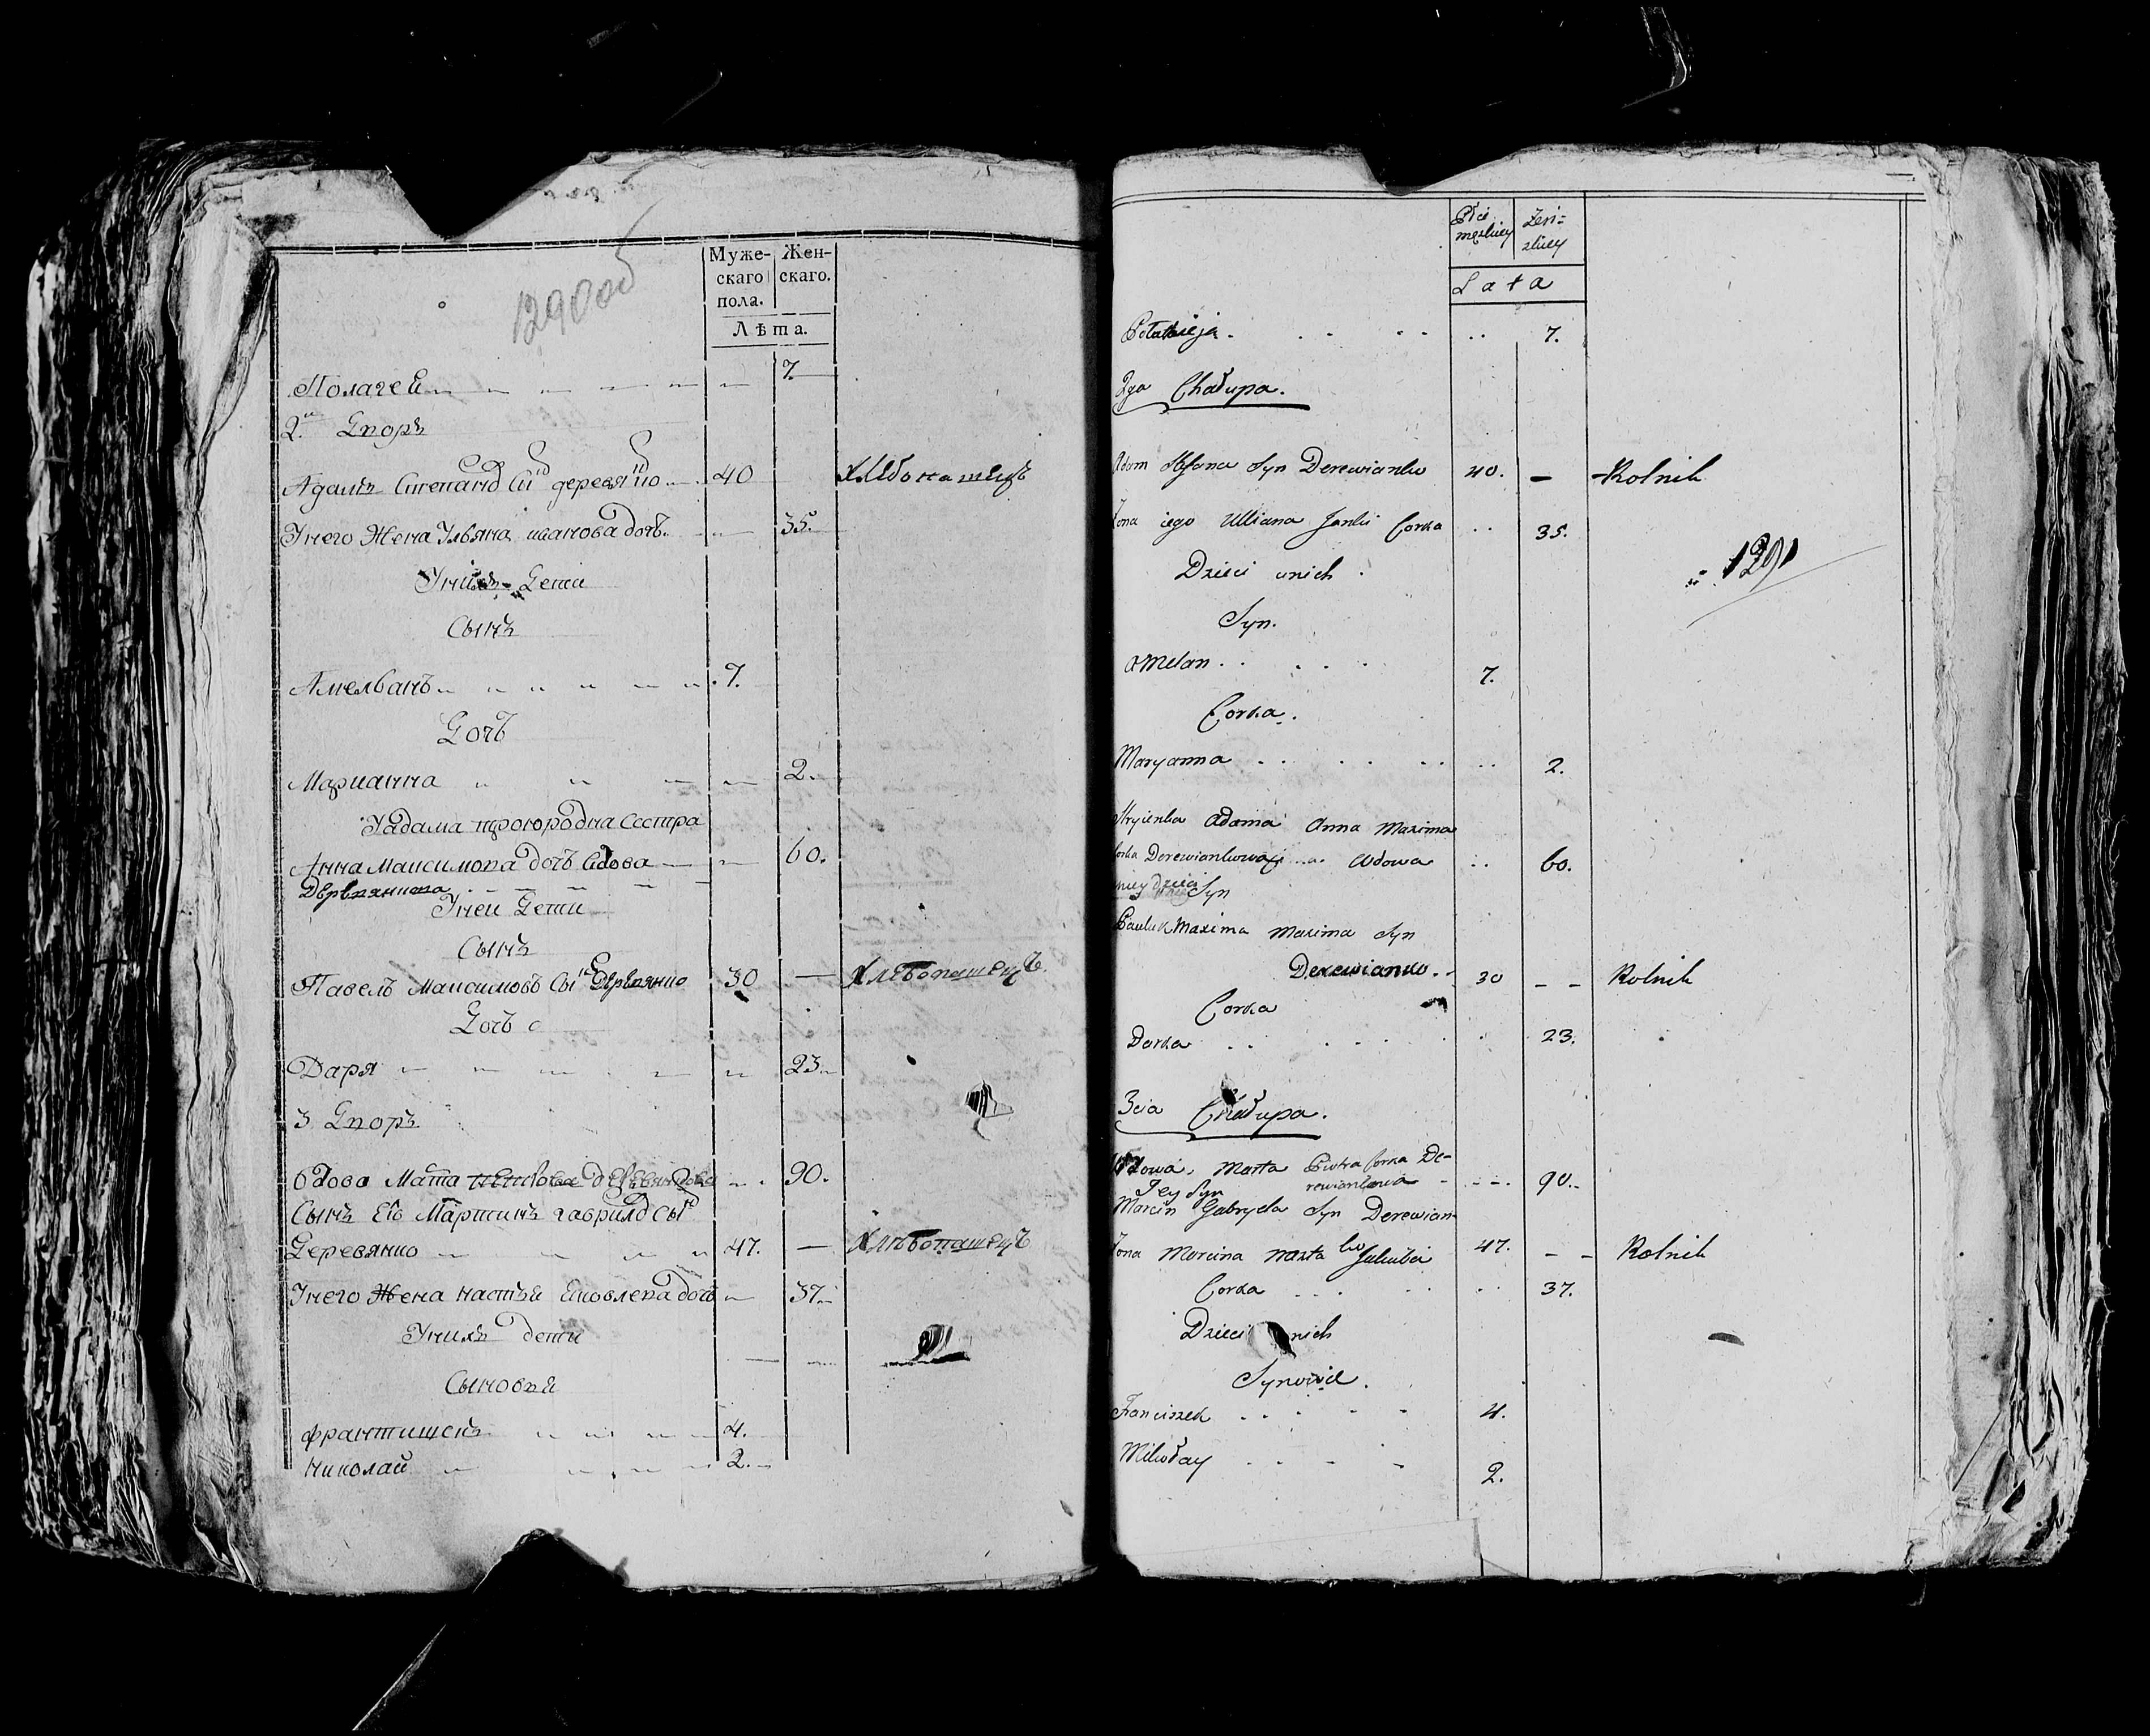 1290 об
Муже-
скаго
пола.
Жен-
скаго.
Лѣта.
Полагея 7.
2й Дворъ
Адамъ Степана Сын деревянко 40 хлебопашецъ
Унего Жена Ульяна иванова дочь 35.
Унихъ Дети
Сынъ
Амелванъ 7.
Дочь
Марианна 2.
Уадама троюродна Сестра
Анна Максимова дочь Вдова 60.
Деревянкова
Уней Дети
Сынъ
Павелъ Максимовъ Сын Деревянко 30 — Хлебопашецъ
Дочь
Даря 23
3 Дворъ
Вдова Марта деревянкова 90.
Сынъ Ев Мартинъ гаврила Сын
Деревянко 47. — Хлебопашецъ
Унего Жена настья Яковлева дочь 37.
Унихъ дети
Сыновья
Франтишекъ 4.
Николай 2.
Płci
męzkiey
Żeń-
zkiey
Lata
7.
2ga Chałupa.
Adam Stefana Syn Derewianko 40. — Rolnik
Żona iego Ulliana Janki Corka 35.
1291
Dzieci unich
Syn.
Omelan 7.
Corka.
Maryanna 2.
Stryienka Adama Anna Maxima
Corka Derewiankowa Wdowa 60.
niey dzieci Syn
Pauluk Maxima Maxima Syn
Derewianko 30 — — Rolnik
Corka
Dorka 23.
3cia Chałupa.
Wdowa, Marta Piotra Corka De-
rewiankowa 90.
Jey Syn
Marcin Gabryela Syn Derewian-
ko 47. — — Rolnik
Żona Marcina nasta Jakuba
Corka 37.
Dzieci unich
Synowie.
Franciszek 4.
Mikołay 2.